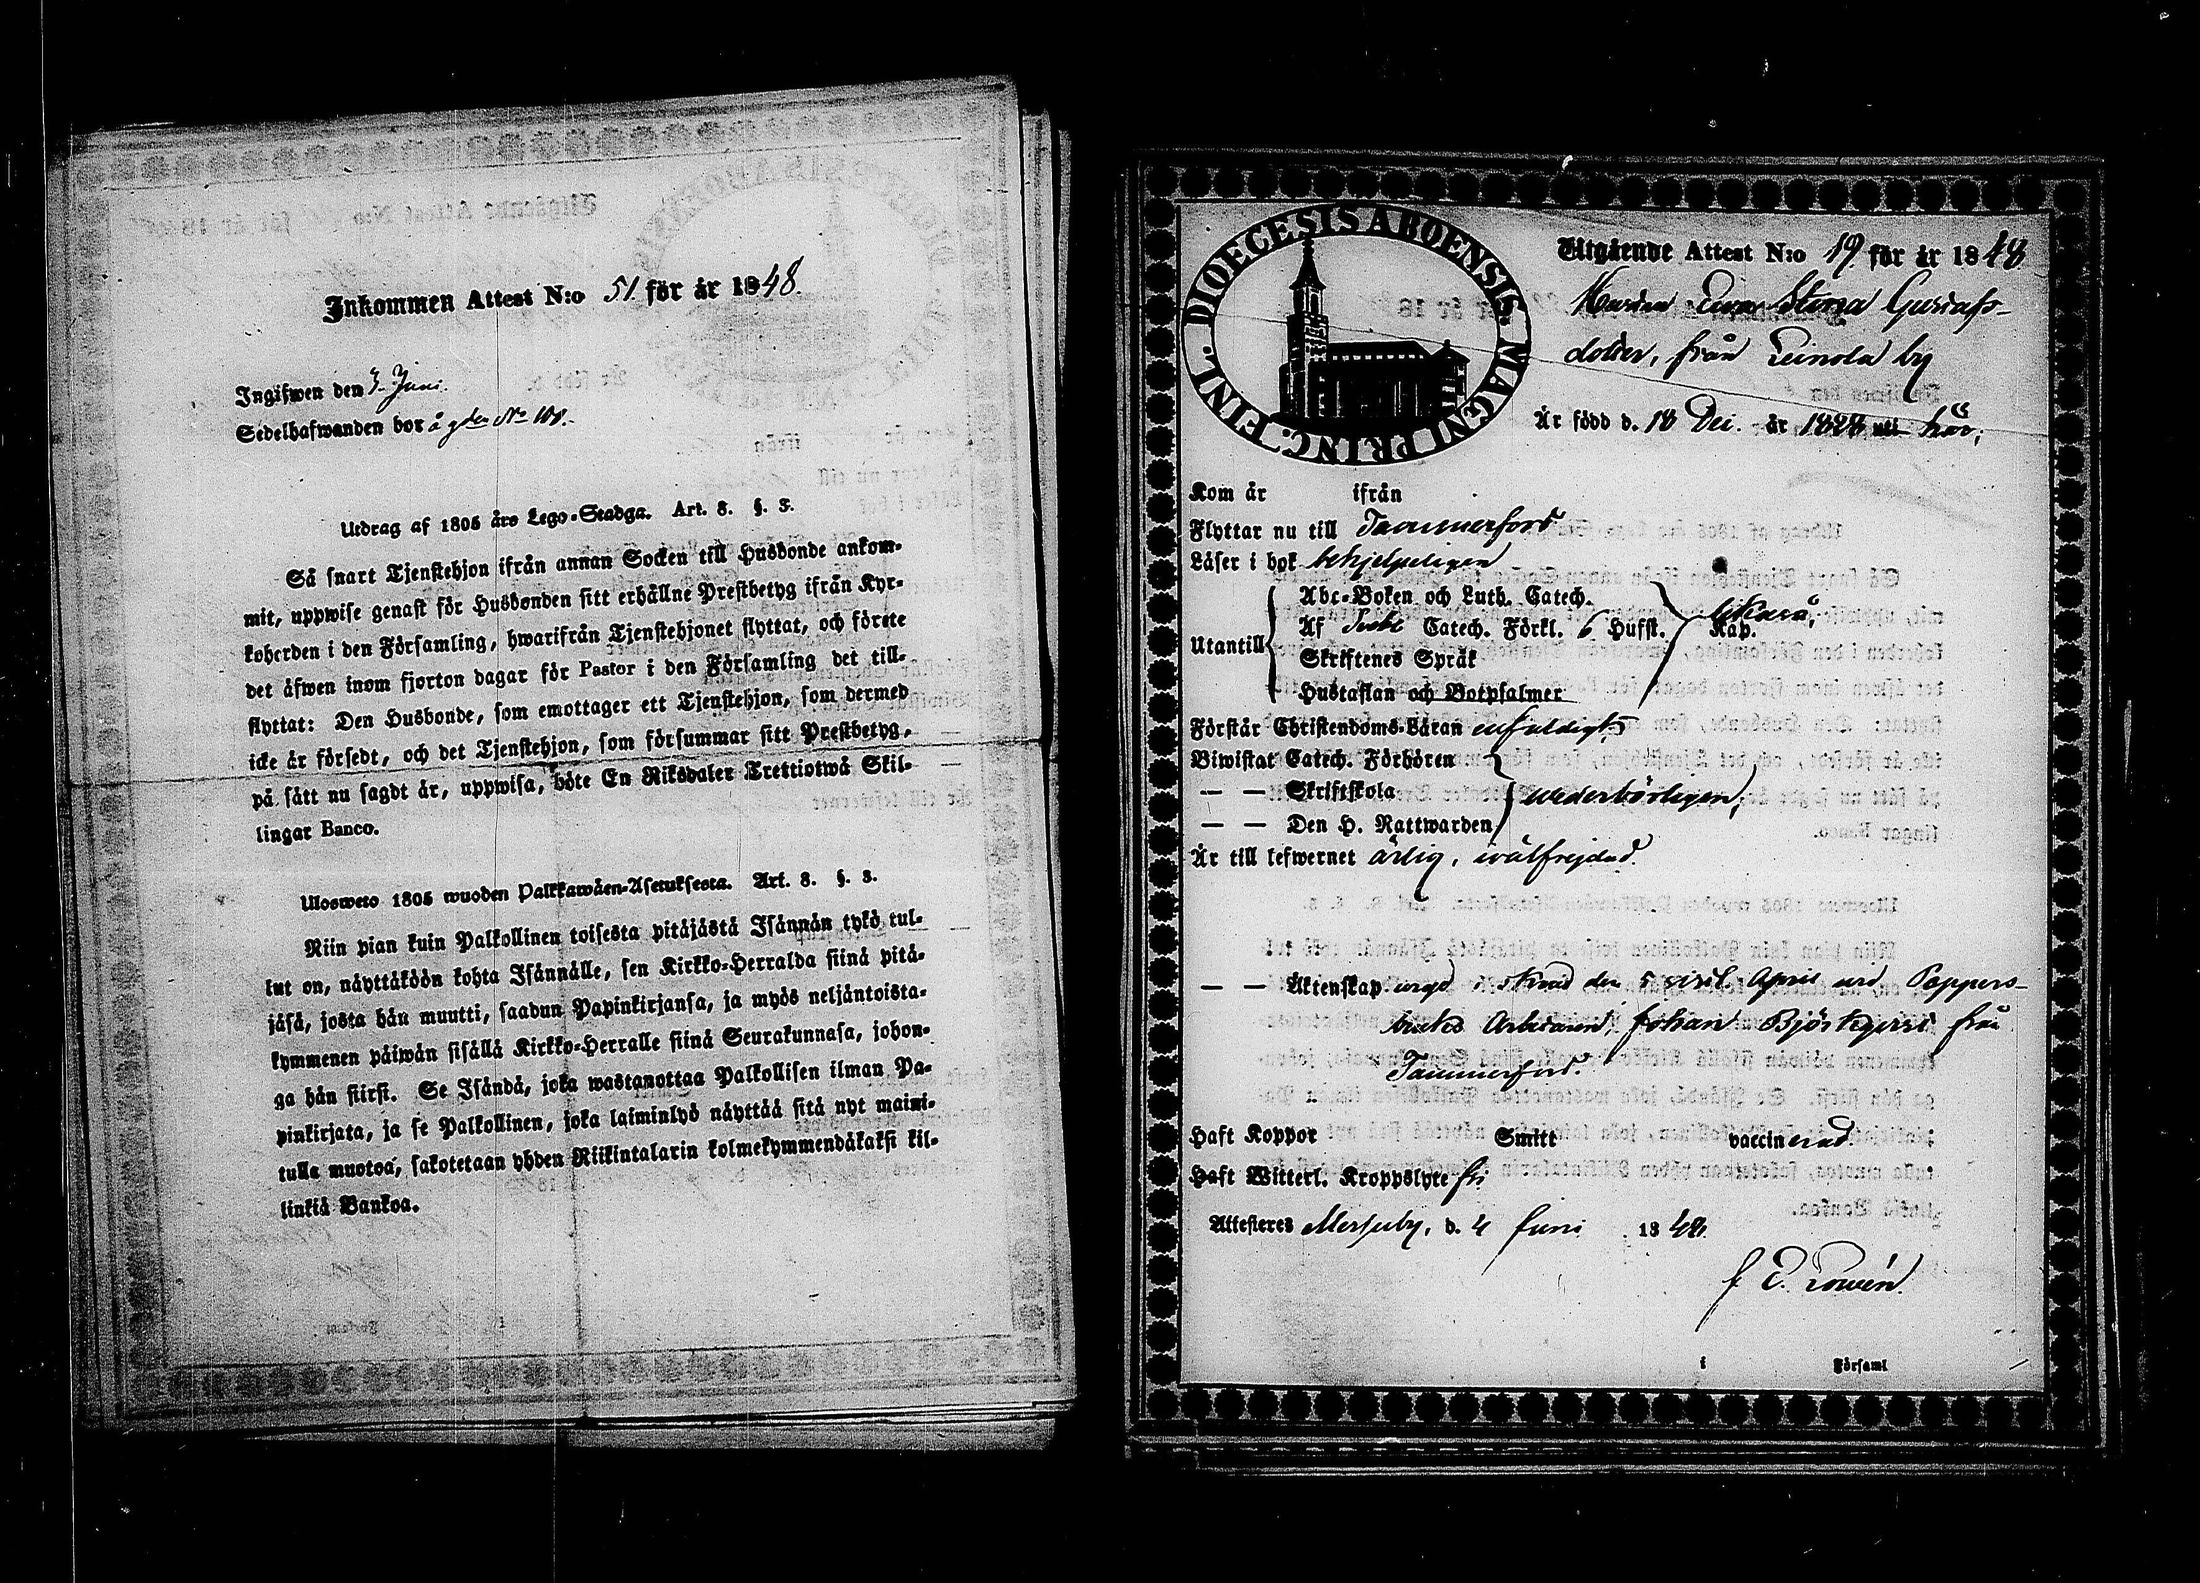 Inkommen Attest N:o 51. för år 1848.
Ingifwen den 7. Juni.
Sedelhafwanden bor å gden No
Utdrag af 1805 års Lego-Stadga. Art. 8. §. 3.
Så snart Tjenstehjon ifrån annan Socken till Husbonde ankom-
mit, uppwise genast för Husbonden sitt erhållne Prestbetyg ifrån Kyr-
koherden i den Församling, hwarifrån Tjenstehjonet flyttat, och förete
det äfwen inom fjorton dagar för Pastor i den Församling det till-
flyttat: Den Husbonde, som emottager ett Tjenstehjon, som dermed
icke är försedt, och det Tjenstehjon, som försummar sitt Prestbetyg,
på sätt nu sagdt är, uppwisa, böte En Riksdaler Trettiotwå Skil-
lingar Banco.
Ulosweto 1805 wuoden Palkkawäen-Asetuksesta. Art. 8. §. 3.
Niin pian kuin Palkollinen toisesta pitäjästä Isännän tykö tul-
lut on, näyttäköön kohta Isännälle, sen Kirkko-Herralda siinä pitä-
jäsä, josta hän muutti, saadun Papinkirjansa, ja myös neljäntoista-
kymmenen päiwän sisällä Kirkko-Herralle siinä Seurakunnasa, johon-
ga hän siirsi. Se Isändä, joka wastanottaa Palkollisen ilman Pa-
pinkirjata, ja se Palkollinen, joka laiminlyö näyttää sitä nyt maini-
tulla muotoa, sakotetaan yhden Riikintalarin kolmekymmendäkaksi kil-
linkiä Bankoa.
DIOECESIS ABOENSIS. MAGNI PRINC. FINL.
Utgående Attest N:o 19. för år 1848
Eva Stina Gustafs-
dotter, från Leinola by
Är född d. 18 Dec. år 1828 uti här;
Kom år ifrån
Flyttar nu till Tammerfors
Läser i bok behjelpeligen
Abc-Boken och Luth. Catech.
Utantill Af Svebi Catech. Förkl. 6 Hufst. Kap. likaså;
Skriftenes Språk
Hustaflan och Botpsalmer
Förstår Christendoms-Läran enfaldigt;
Biwistat Catech. Förhören
— — Skriftskola wederbörligen;
— — Den H. Nattwarden
Är till lefwernet ärlig, wälfrejdad.
— — Äktenskap ingd i sistl. April med Pappers-
bruks Arbetaren, Johan Björkqvist från
Tammerfors.
Haft Koppor Smitt vaccinerad
Haft Witterl. Kroppslyte fri
Attesteres Messuby, d. 4 Juni 1848.
J. E. Lowén.
i Församl